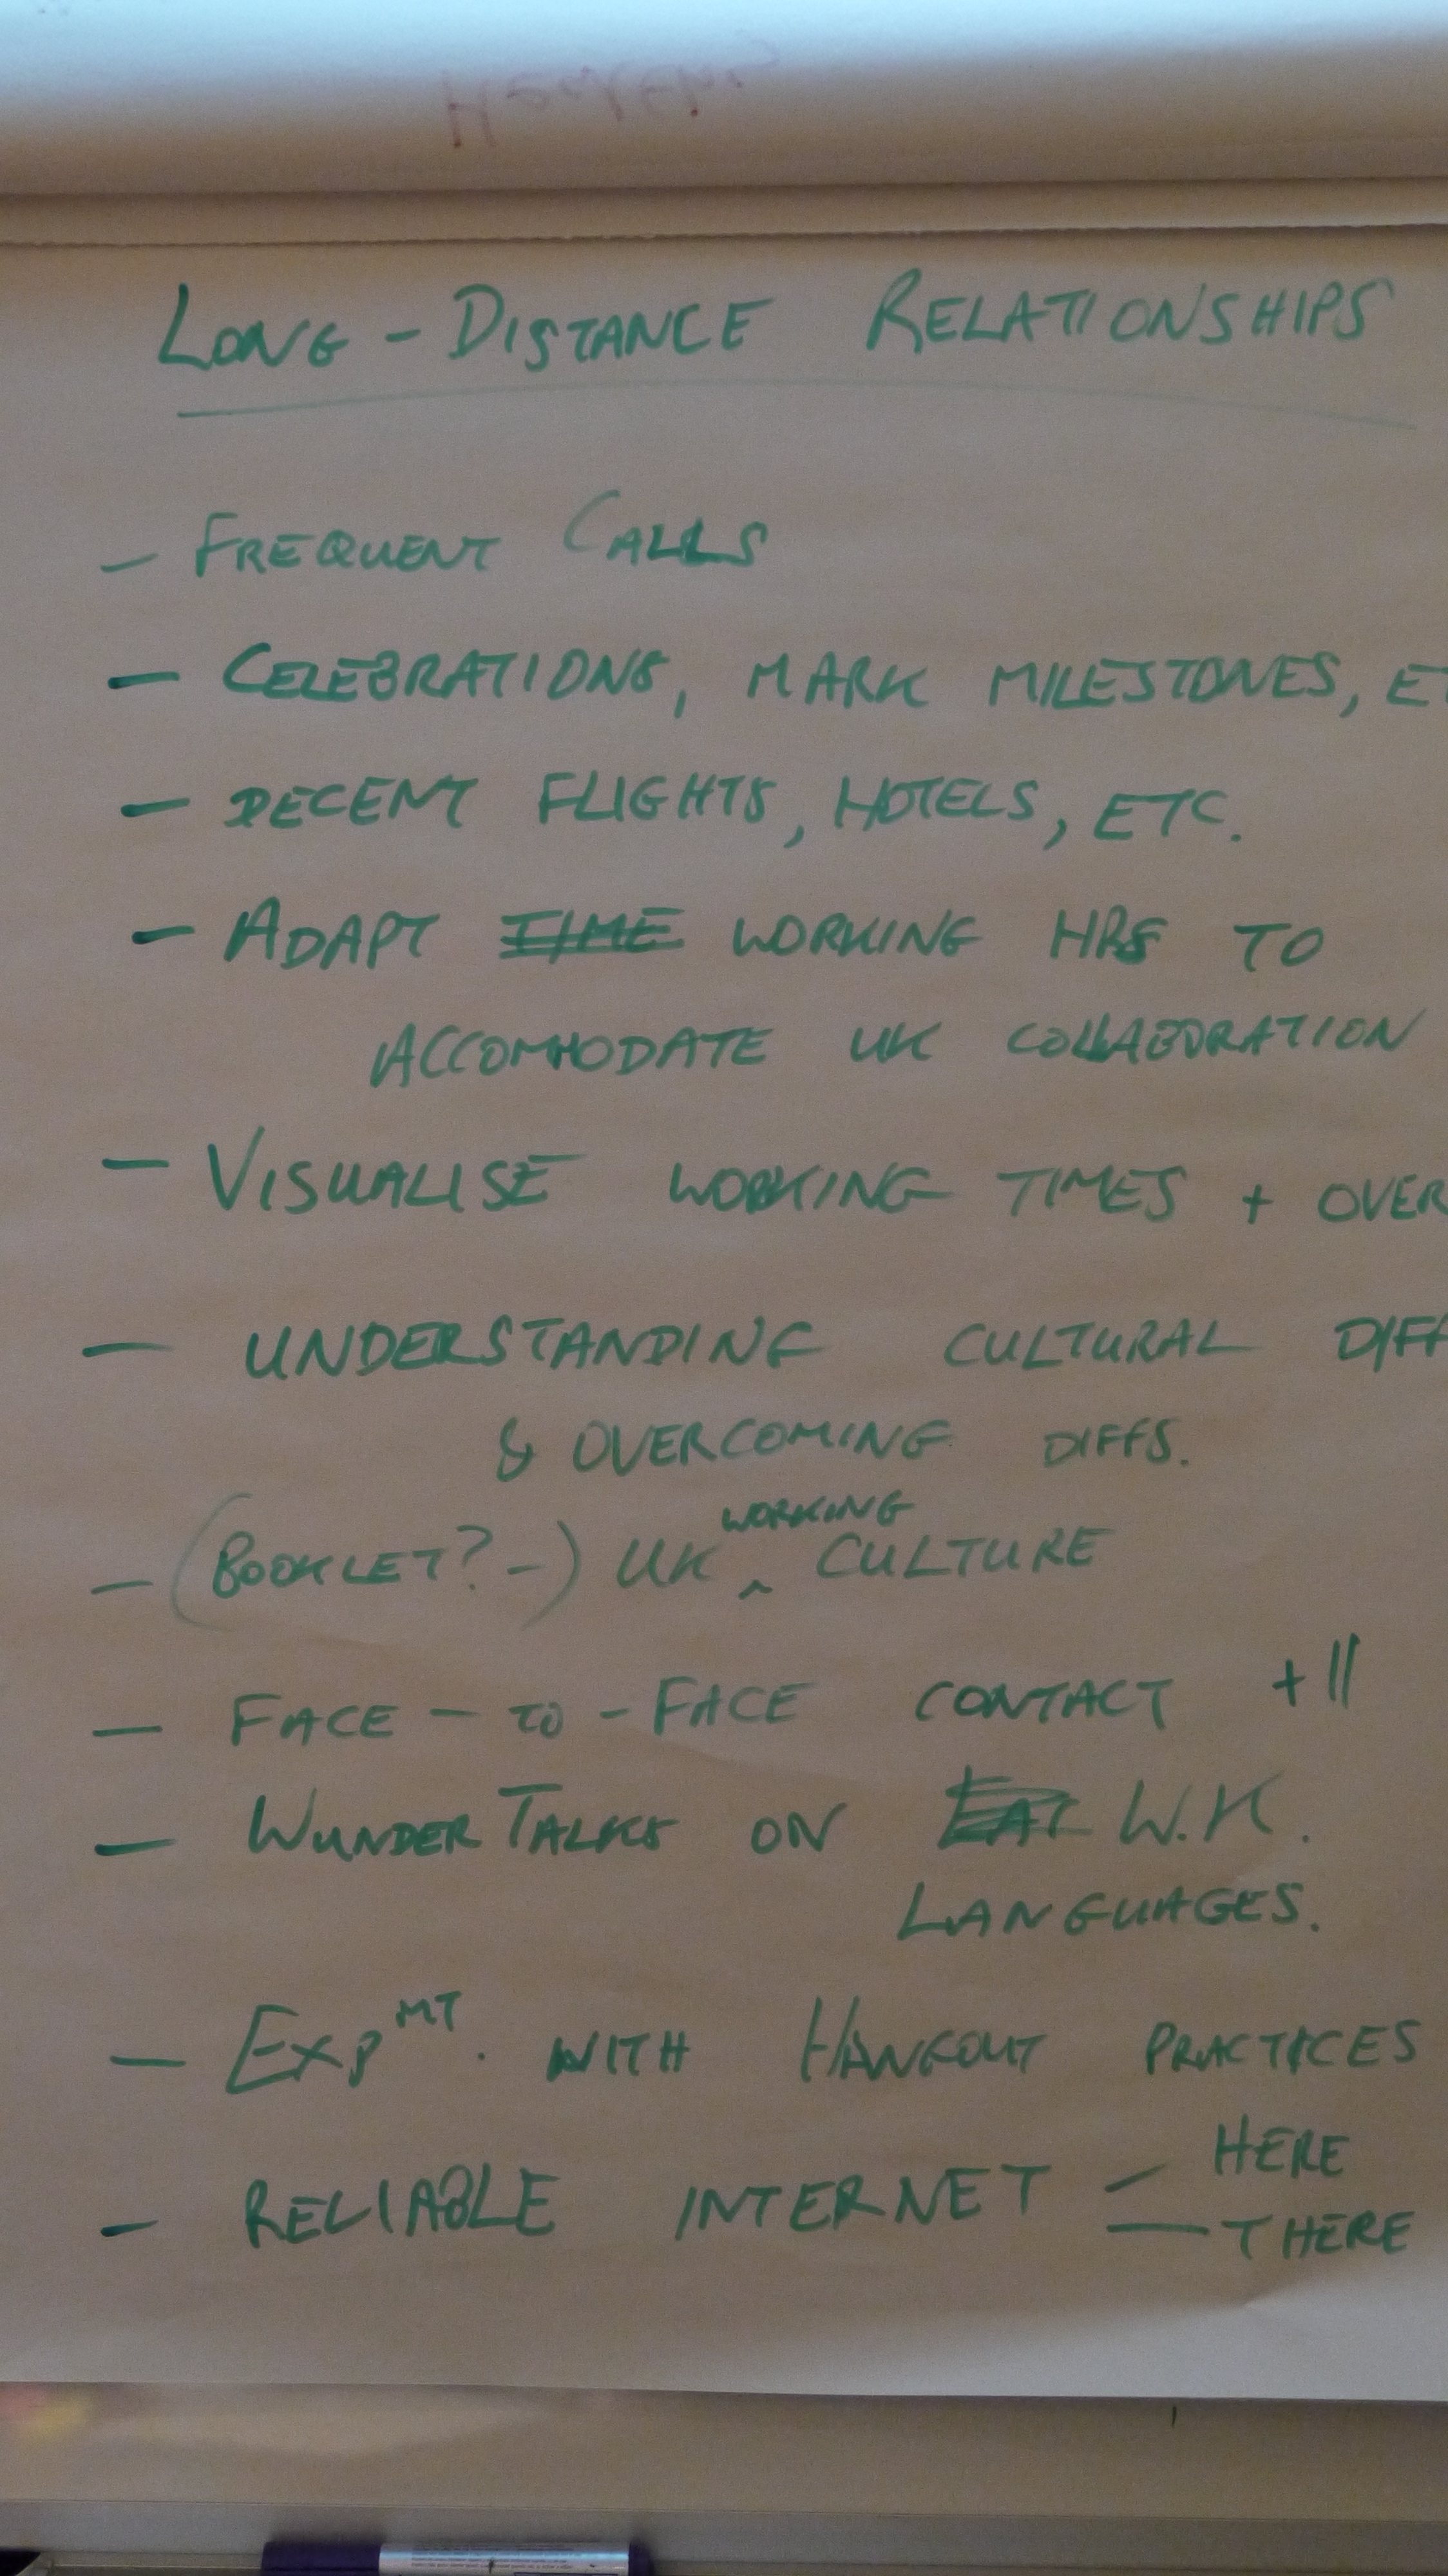 LONG - DISTANCE RELATIONSHIPS
- FREQUENT CALLS
- CELEBRATIONS, MARK MILESTONES, ET
- DECENT FLIGHTS, HOTELS, ETC.
- ADAPT TIME WORKING HRS TO
ACCOMODATE UK COLLABORATION
- VISUALISE WORKING TIMES + OVER
- UNDERSTANDING CULTURAL DIFF
& OVERCOMING DIFFS.
- (BOOKLET? -) UK ^ WORKING CULTURE
- FACE - TO - FACE CONTACT + ||
- WUNDER TALKS ON W.K.
LANGUAGES.
- EXP MT. WITH HANGOUT PRACTICES
- RELIABLE INTERNET - HERE
- THERE